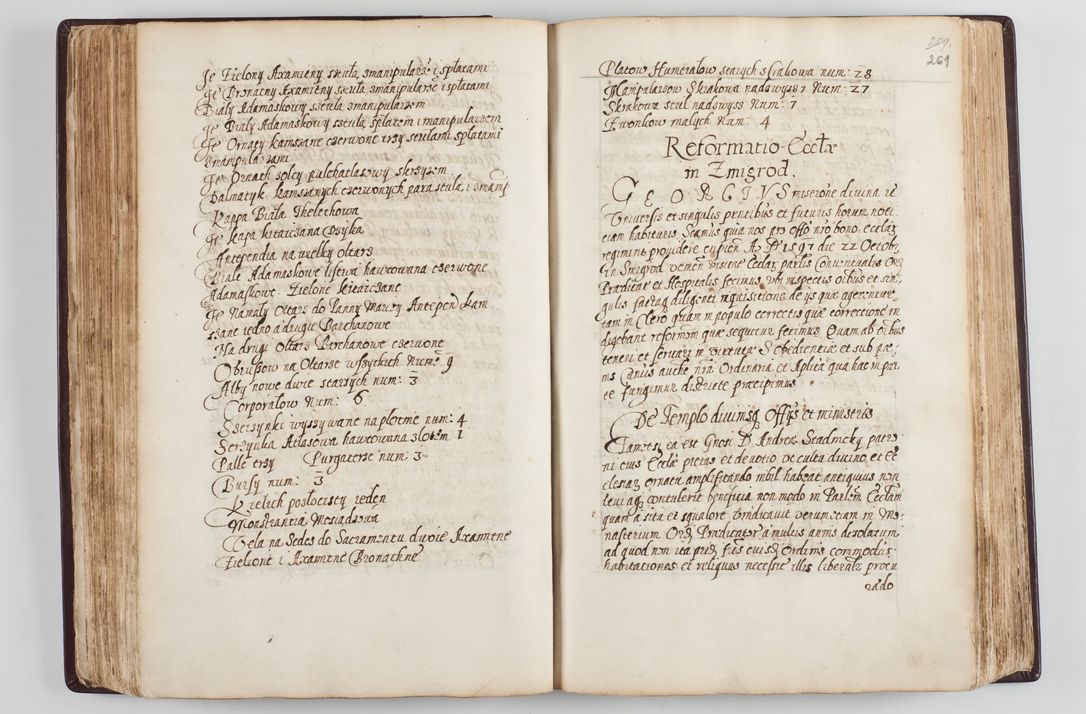 Je Zielony Axamitny stula zmanipularze i splatami
Je Bronatny Axamitny stula zmanipularze i splatami
Biały Adamaskowy sstula zmanipularzem
Je Biały Adamaskowy sstula splatem i manipularzem
Je Ornaty kamszane czerwone trzy stulami splatami
zmanipularzami
Je Ornath zolty pulchatlasowy skrzyzem
Dalmatyk kamszanych czerwonych para stula i zmanip
Kappa Biała Thelethowa
Je kapa kitaiczana
Antependia na wielky oltarz
Białe Adamaskowe listwa hawtowana czerwone
Adamaskowe Zielone kitaiczane
Je Namaly Oltarz do Panny Mariy Antepen kam
szane iedno a drugie Barchanowe
Na drugi Oltarz Barchanowe czerwone
Obrusow na Oltarze wszytkich Num: 9
Alby nowe dwie starzych num: 3
Corporalow Num: 6
wyszywane na plotnie num: 4
Atlasowa hawtowana zlotem 1
Palle trzy Purgaterze num: 3
Bursy num: 3
Kielich poslocisty ieden
Monstrantia Mosiadzowa
Vela na Sedes do Sacramentu dwoie Axamitne
Zielione i Axamitne Bronathne
229.
261
Platow Humeralow starych skrabowa num: 28
Manipularzow Skrakowa nadzwysz 7 Num: 27
Skrakowa stul nadzwysz Num: 7
Zwonkow malych Num: 4
Reformatio Eccłæ
in Zmigrod.
GEORGIVS miserõne divina rē
Vniversis et singulis pentibus et futuris horum noti
ciam habituris Scimus quia nos pro offō nrō bono ecclar
regimini providere cupien A D 1597 die 22 Octobr
in Smigrod venien visitne Ecclar parlis Conventualis Ord
Prædicat et Hospitalis fecimus, vbi inspectis oibus et sin,
gulis factaq diligenti inquisitione de ys quæ agerentur
tam in Clero quam in populo correctis quæ correctione in
digebant reformōm quæ sequitur fecimus Quam ab oibus
teneri et servari in virtute S Obedientiæ et sub pœ,
nis Canūs aucthe nrā Ordinaria et Aplica qua hac in par
te fungimur districte præcipimus
De Templo divinisq Offys et ministris
Tametsi ea est Gnosi D Andreæ Stadnicky patro
ni eius Ecclæ pietas et devotio vt cultu divino, et Ec
clesiar ornatu amplificando nihil habeat antiquius non
leviaq contulerit beneficia non modo in Parlem Ecclam
quam a sita et squalore vindicavit verum etiam in Mo,
nasterium Ord Prædicator a multis annis desolatum
ad quod non ita prid Fris eiusd Ordinis commodas
habitationes et reliquas necessit illis liberale procu
rādo